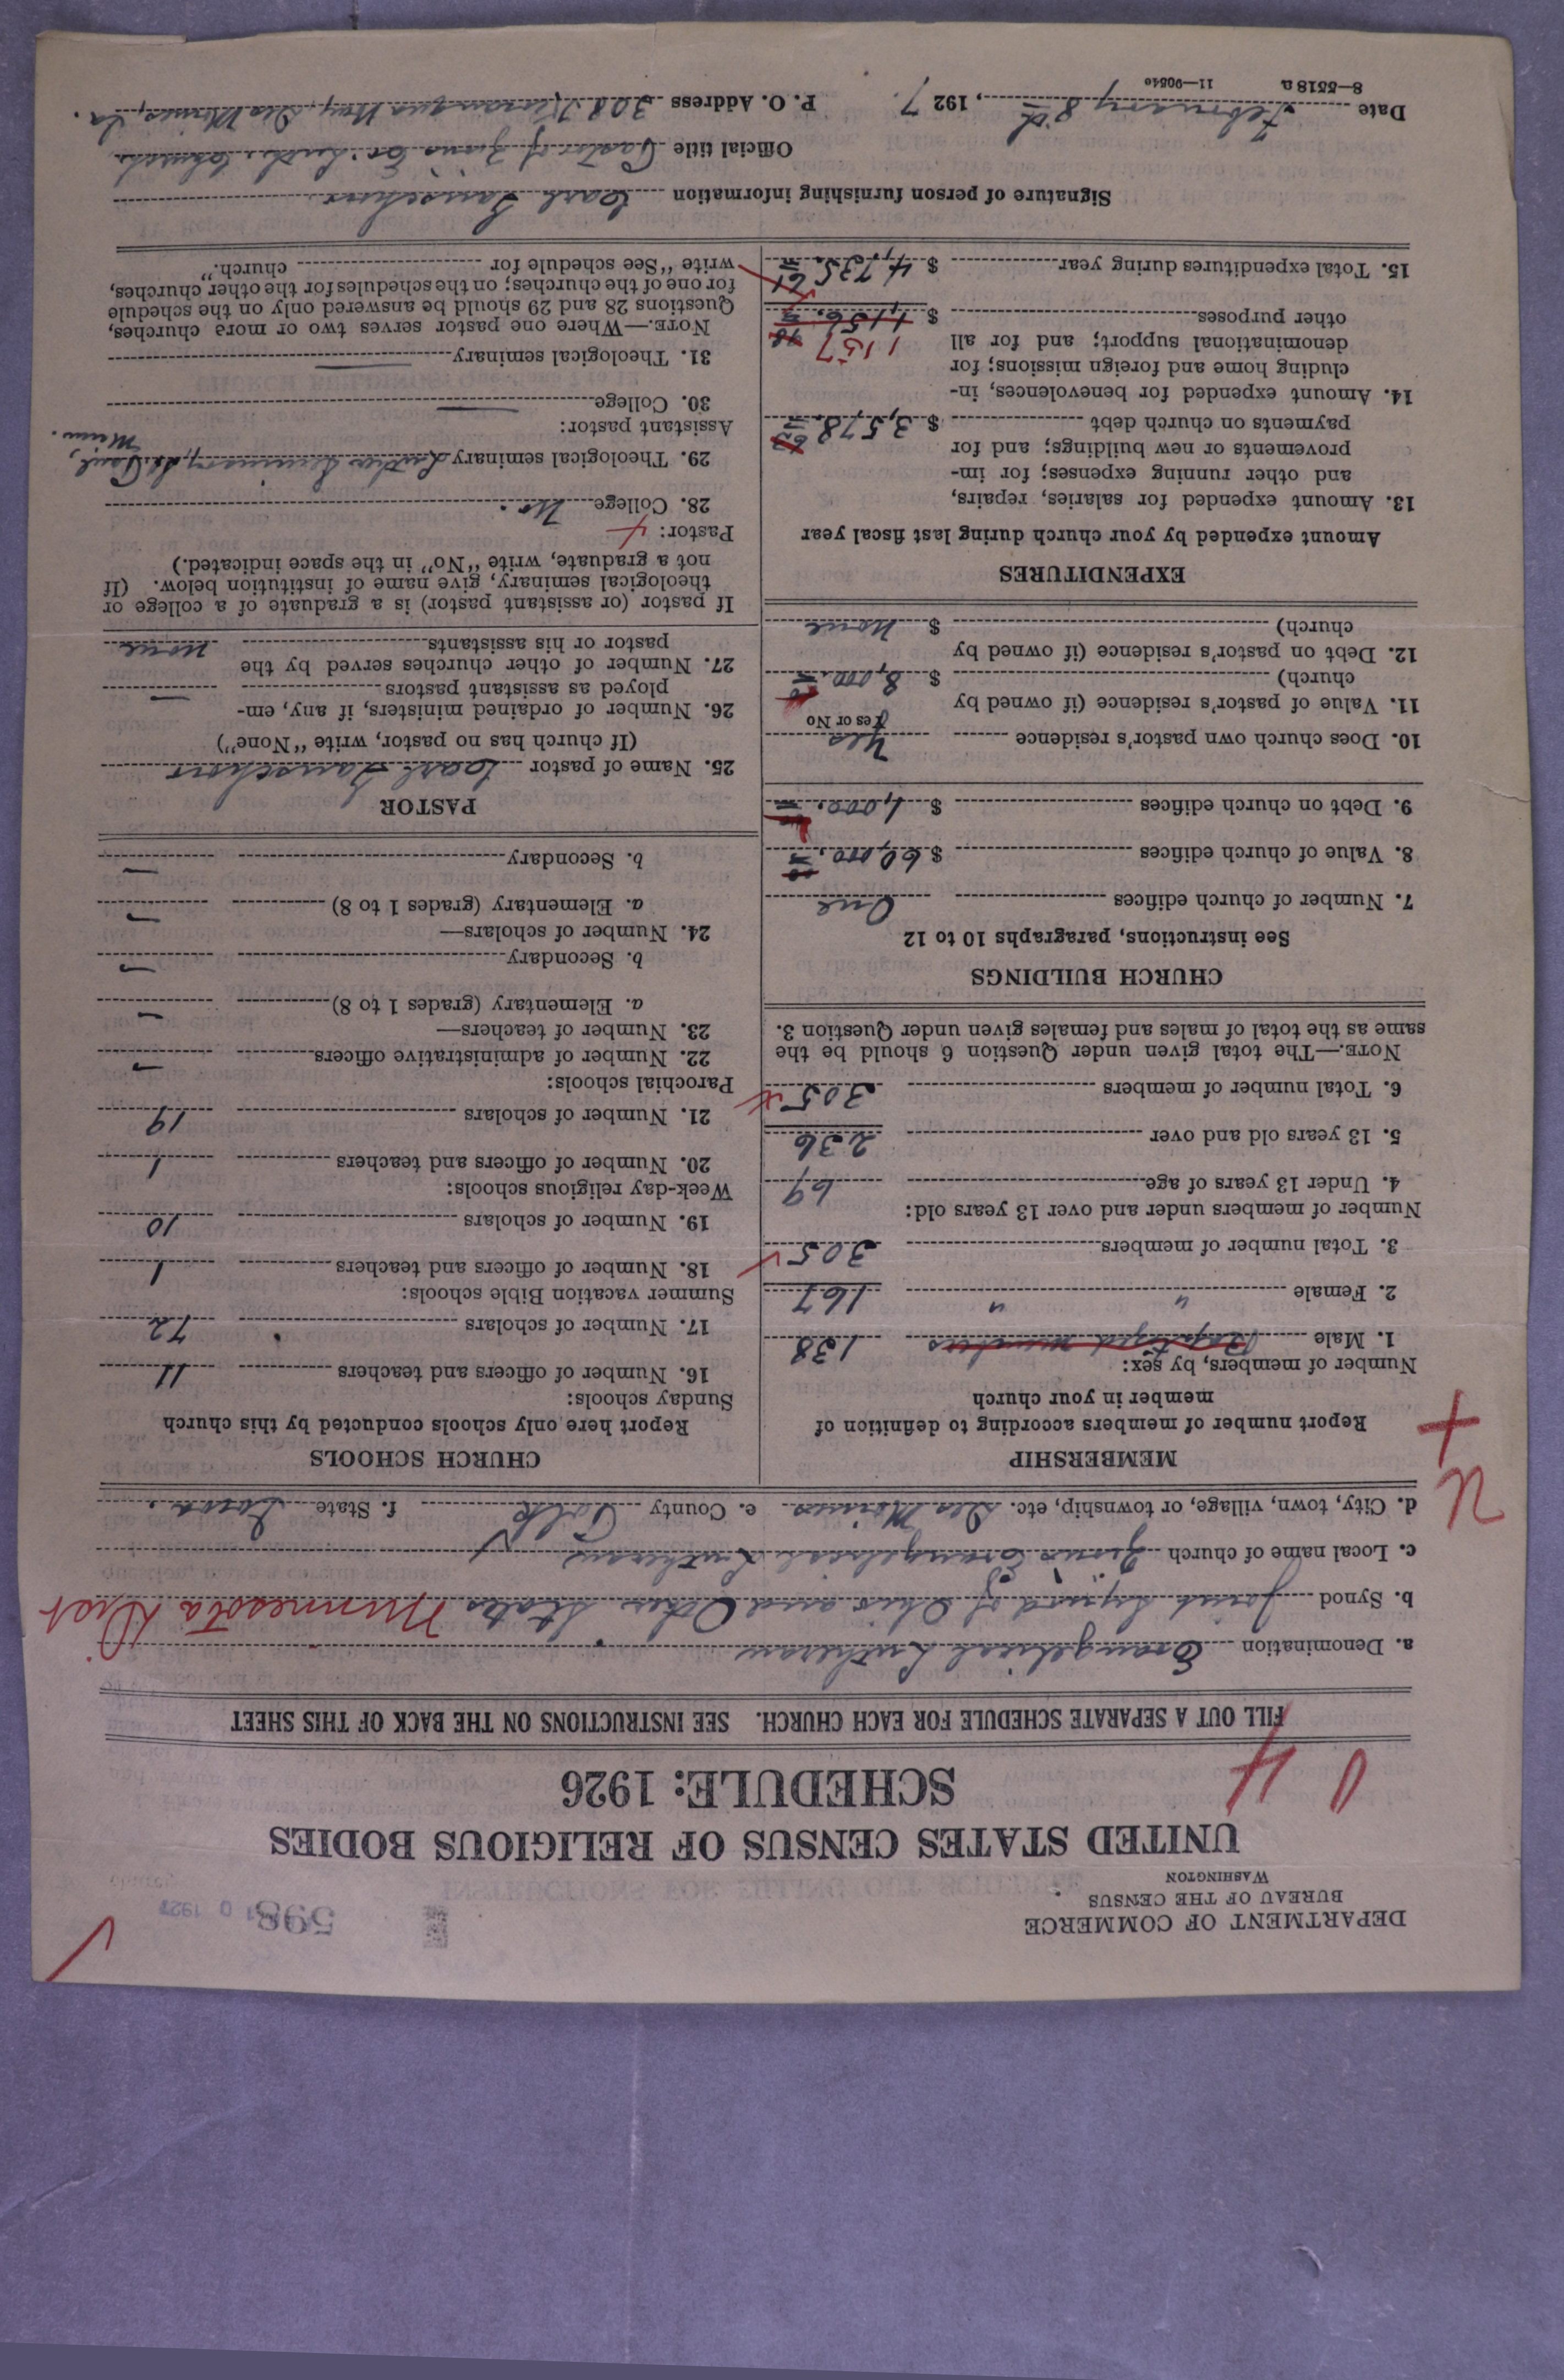 DEPARTMENT OF COMMERCE
BUREAU OF THE CENSUS
WASHINGTON
598
UNITED STATES CENSUS OF RELIGIOUS BODIES
SCHEDULE: 1926
FILL OUT A SEPARATE SCHEDULE FOR EACH CHURCH. SEE INSTRUCTIONS ON THE BACK OF THIS SHEET
a. Denomination Evangelical Lutheran
b. Synod Joint Synod of Ohio and Other States Minnesota Dist
c. Local name of church Zions Evangelical Lutheran
d. City, town, village, or township, etc. Des Moines e. County Polk f. State Iowa.
MEMBERSHIP
Report number of members according to definition of
member in your church
Number of members, by sex:
1. Male Baptized members 138
2. Female " " 167
3. Total number of members 305
Number of members under and over 13 years old:
4. Under 13 years of age 69
5. 13 years old and over 236
6. Total number of members 305
NOTE.—The total given under Question 6 should be the
same as the total of males and females given under Question 3.
CHURCH BUILDINGS
See instructions, paragraphs 10 to 12
7. Number of church edifices One
8. Value of church edifices $ 60,000.00
9. Debt on church edifices $ 1,000.
10. Does church own pastor's residence Yes
Yes or No
11. Value of pastor's residence (if owned by
church) $ 8,000.
12. Debt on pastor's residence (if owned by
church) $ None
EXPENDITURES
Amount expended by your church during last fiscal year
13. Amount expended for salaries, repairs,
and other running expenses; for im-
provements or new buildings; and for
payments on church debt $ 3,578.
14. Amount expended for benevolences, in-
cluding home and foreign missions; for
denominational support; and for all 1157
other purposes $ 1,156.
15. Total expenditures during year $ 4,735.
CHURCH SCHOOLS
Report here only schools conducted by this church
Sunday schools:
16. Number of officers and teachers 11
17. Number of scholars 72
Summer vacation Bible schools:
18. Number of officers and teachers 1
19. Number of scholars 10
Week-day religious schools:
20. Number of officers and teachers 1
21. Number of scholars 19
Parochial schools:
22. Number of administrative officers —
23. Number of teachers—
a. Elementary (grades 1 to 8) —
b. Secondary —
24. Number of scholars—
a. Elementary (grades 1 to 8) —
b. Secondary —
PASTOR
25. Name of pastor Carl
(If church has no pastor, write "None")
26. Number of ordained ministers, if any, em-
ployed as assistant pastors —
27. Number of other churches served by the
pastor or his assistants None
If pastor (or assistant pastor) is a graduate of a college or
theological seminary, give name of institution below. (If
not a graduate, write "No" in the space indicated.)
Pastor:
28. College No.
29. Theological seminary Luther Seminary, St. Paul,
Minn.
Assistant pastor:
30. College —
31. Theological seminary —
NOTE.—Where one pastor serves two or more churches,
Questions 28 and 29 should be answered only on the schedule
for one of the churches; on the schedules for the other churches,
write "See schedule for church."
Signature of person furnishing information Carl
Official title Pastor of Zions Ev. Luth. Church.
Date February 8th, 1927. P. O. Address Way, Des Moines, Ia.
8—5518 a 11—9054c